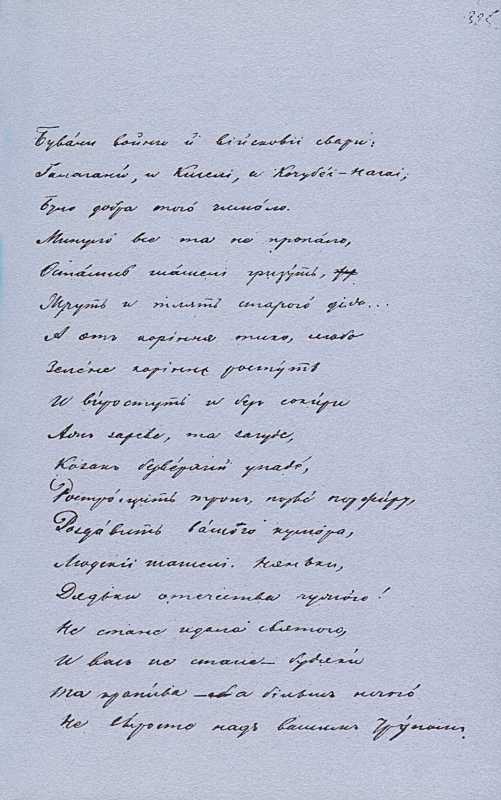 Бували войны й військовіи свари:
Галаганы, и Киселі, и Кочубеи-Нагаі;
Було добра того чимало.
Минуло все та не пропало,
Остались шашелі: гризуть,
Жруть и тлять старого діда...
А отъ коріння тихо, любо
Зелене коріння ростуть
И виростуть и безъ сокири
Ажъ зареве, та загуде,
Козакъ безверхий упаде,
Ростро́щить тронъ, порве порфиру,
Роздавить вашого кумира,
Людскіи шашелі. Няньки,
Дядьки отечества чужого!
Не стане идола святого,
И васъ не стане — будяки
Та кропива — а більшъ ничого
Не виросте надъ вашимъ трупомъ,